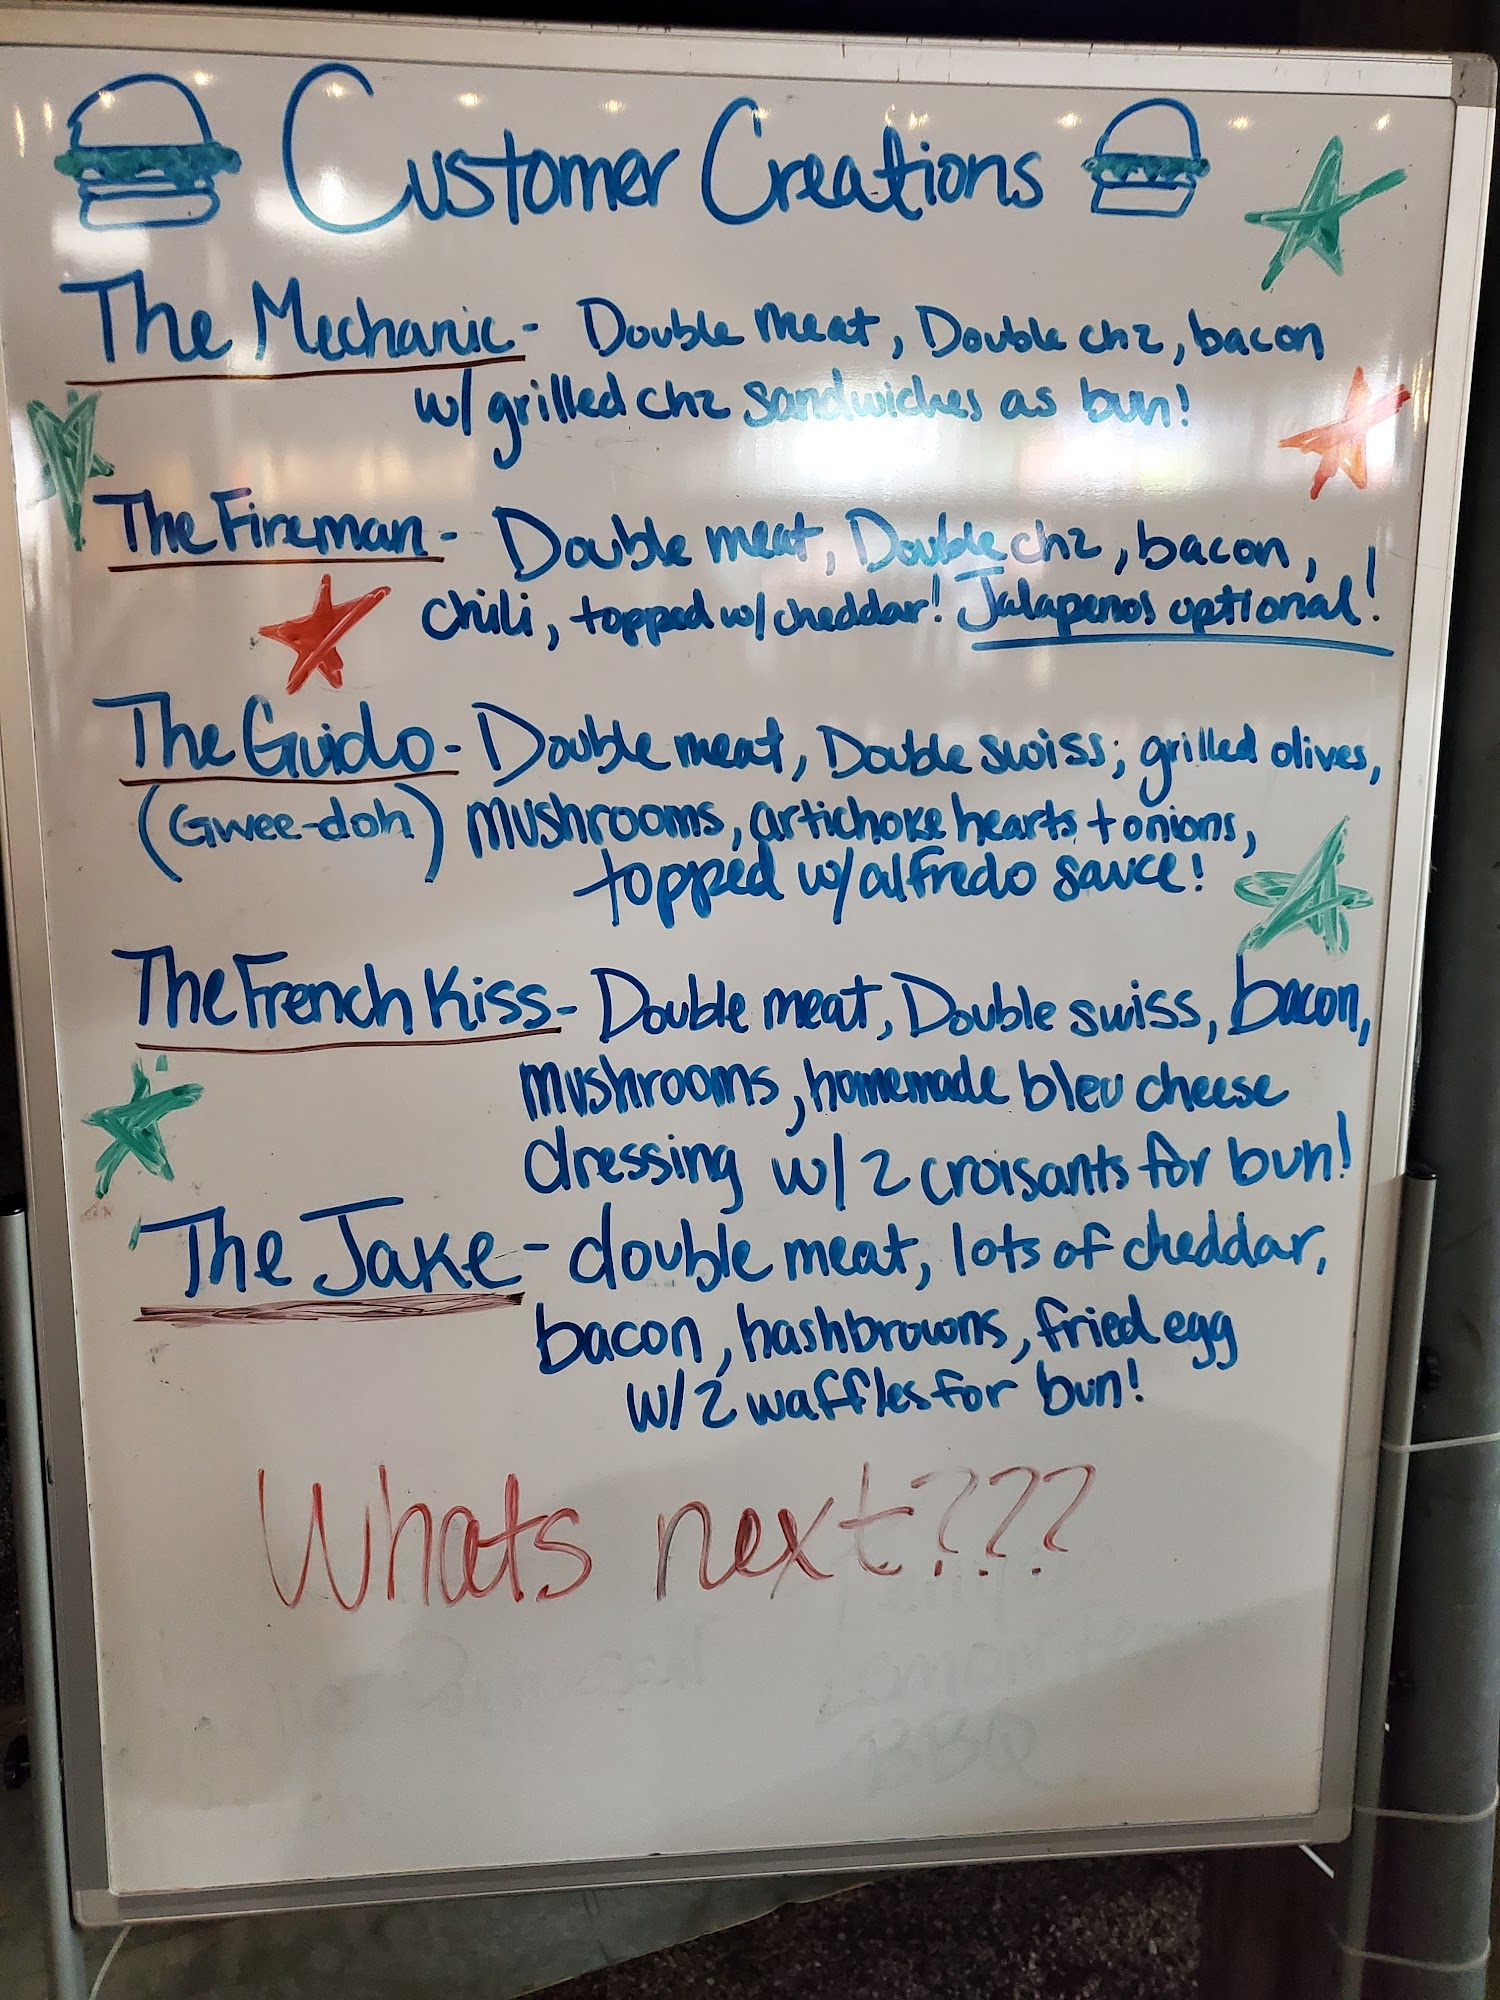 Customer Creations
The Mechanic - Double meat, Double chz, bacon
w/ grilled chz sandwiches as bun!
The Fireman - Double meat, Double chz, bacon,
chili, topped w/ cheddar! Jalapenos optional!
The Guido - Double meat, Double swiss; grilled olives,
(Gwee-doh) mushrooms, artichoke hearts + onions,
topped w/ alfredo sauce!
The French Kiss - Double meat, Double swiss, bacon,
mushrooms, homemade bleu cheese
dressing w/ 2 croisants for bun!
The Jake - double meat, lots of cheddar,
bacon, hashbrowns, fried egg
w/ 2 waffles for bun!
Whats next???
BBQ